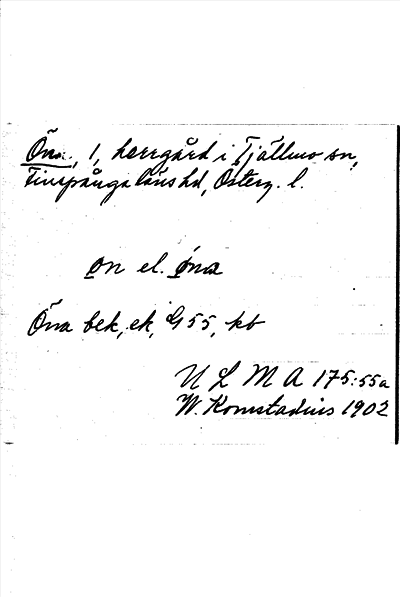 Öna, 1, herrgård i Tjällmo sn,
Finspånga läns hd, Österg. l.
on el. óna
Öna bek, ek, G 55, kb
U L M A 175:55a
W. Komstadius 1902